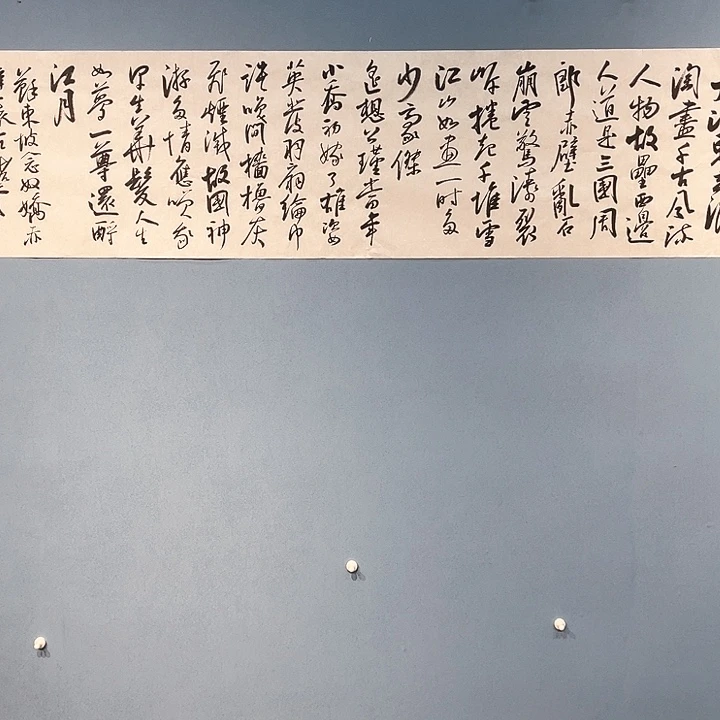 大江東去浪
淘盡千古風流
人物故壘西邊
人道是三國周
郎赤壁亂石
崩雲驚濤裂
岸捲起千堆雪
江山如畫一時多
少豪傑
遙想公瑾當年
小喬初嫁了雄姿
英發羽扇綸巾
談笑間檣櫓灰
飛煙滅故國神
游多情應笑我
早生華髮人生
如夢一尊還酹
江月
蘇東坡念奴嬌赤
壁懷古